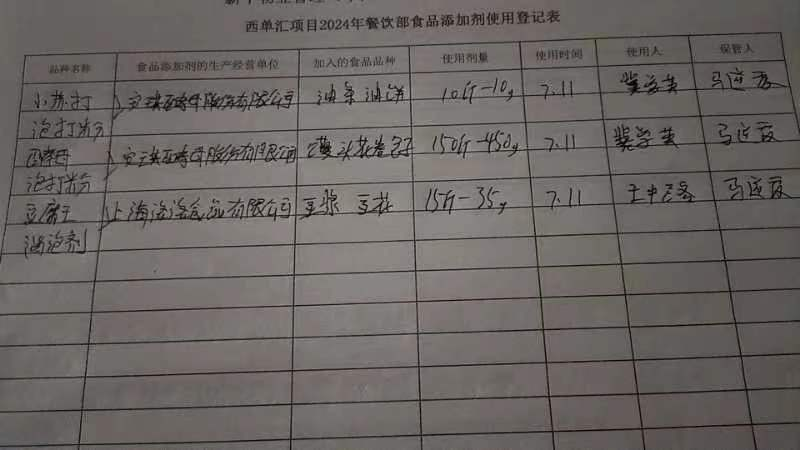 西单汇项目2024年餐饮部食品添加剂使用登记表
品种名称 食品添加剂的生产经营单位 加入的食品品种 使用剂量 使用时间 使用人 保管人
小苏打 安琪酵母股份有限公司 油条 油饼 10斤-10g 7.11
泡打粉
酵母 安琪酵母股份有限公司 馒头花卷包子 150斤-450g 7.11
泡打粉
豆腐王 上海 有限公司 豆浆 豆花 15斤-35g 7.11
消泡剂